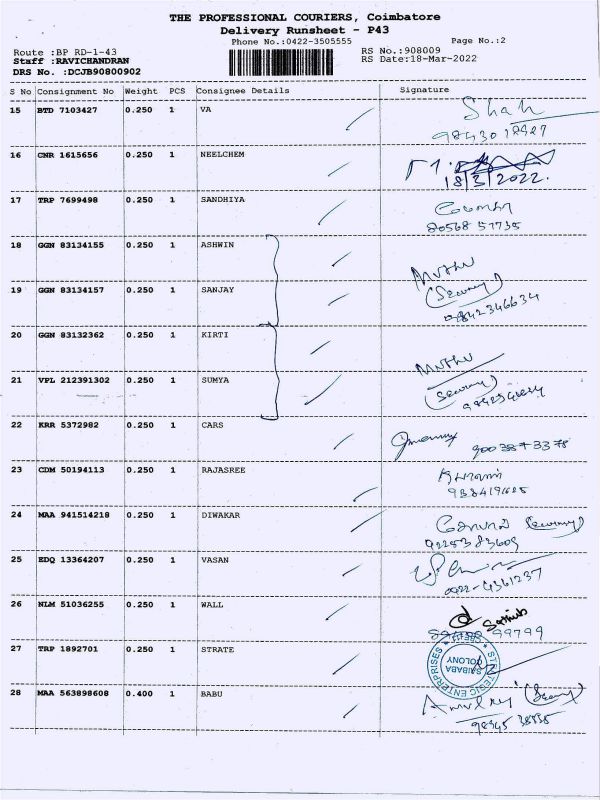 THE PROFESSIONAL COURIERS, Coimbatore
Delivery Runsheet - P43
Phone No.:0422-3505555 Page No.:2
Route :BP RD-1-43 RS No.:908009
Staff :RAVICHANDRAN RS Date:18-Mar-2022
DRS No. :DCJB90800902
S No Consignment No Weight PCS Consignee Details Signature
15 BTD 7103427 0.250 1 VA Shah
16 CNR 1615656 0.250 1 NEELCHEM
18/3/2022.
17 TRP 7699498 0.250 1 SANDHIYA
80568 57735
18 GGN 83134155 0.250 1 ASHWIN Muthu
19 GGN 83134157 0.250 1 SANJAY (Security)
9842346634
20 GGN 83132362 0.250 1 KIRTI Muthu
21 VPL 212391302 0.250 1 SUMYA (Security)
22 KRR 5372982 0.250 1 CARS
23 CDM 50194113 0.250 1 RAJASREE
24 MAA 941514218 0.250 1 DIWAKAR (Security)
25 EDQ 13364207 0.250 1 VASAN
0422-4361237
26 NLM 51036255 0.250 1 WALL
99799
27 TRP 1892701 0.250 1 STRATE STRATEGIC ENTERPRISES
SAIBABA COLONY
28 MAA 563898608 0.400 1 BABU